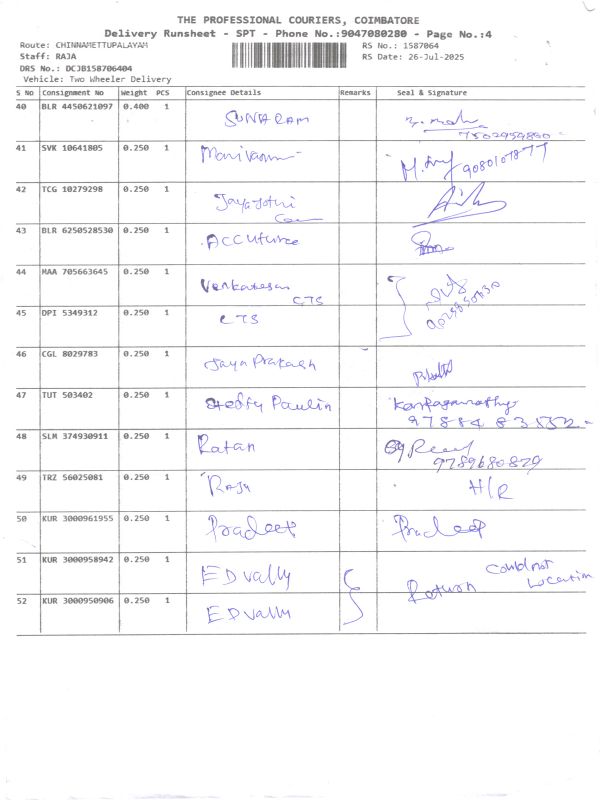 THE PROFESSIONAL COURIERS, COIMBATORE
Delivery Runsheet - SPT - Phone No.:9047080280 - Page No.:4
Route: CHINNAMETTUPALAYAM RS No.: 1587064
Staff: RAJA RS Date: 26-Jul-2025
DRS No.: DCJB158706404
Vehicle: Two Wheeler Delivery
S No Consignment No Weight PCS Consignee Details Remarks Seal & Signature
40 BLR 4450621097 0.400 1 SUNDARAM
41 SVK 10641805 0.250 1
42 TCG 10279298 0.250 1 Jayajothi
43 BLR 6250528530 0.250 1
44 MAA 705663645 0.250 1 Venkatesan
CTS
45 DPI 5349312 0.250 1 CTS
46 CGL 8029783 0.250 1 Jaya Prakash
47 TUT 503402 0.250 1 Paulin
48 SLM 374930911 0.250 1 Ratan
9789680829
49 TRZ 56025081 0.250 1 Raju H/R
50 KUR 3000961955 0.250 1 Pradeep Pradeep
51 KUR 3000958942 0.250 1 EDvally Could not
Return Location
52 KUR 3000950906 0.250 1 EDvally